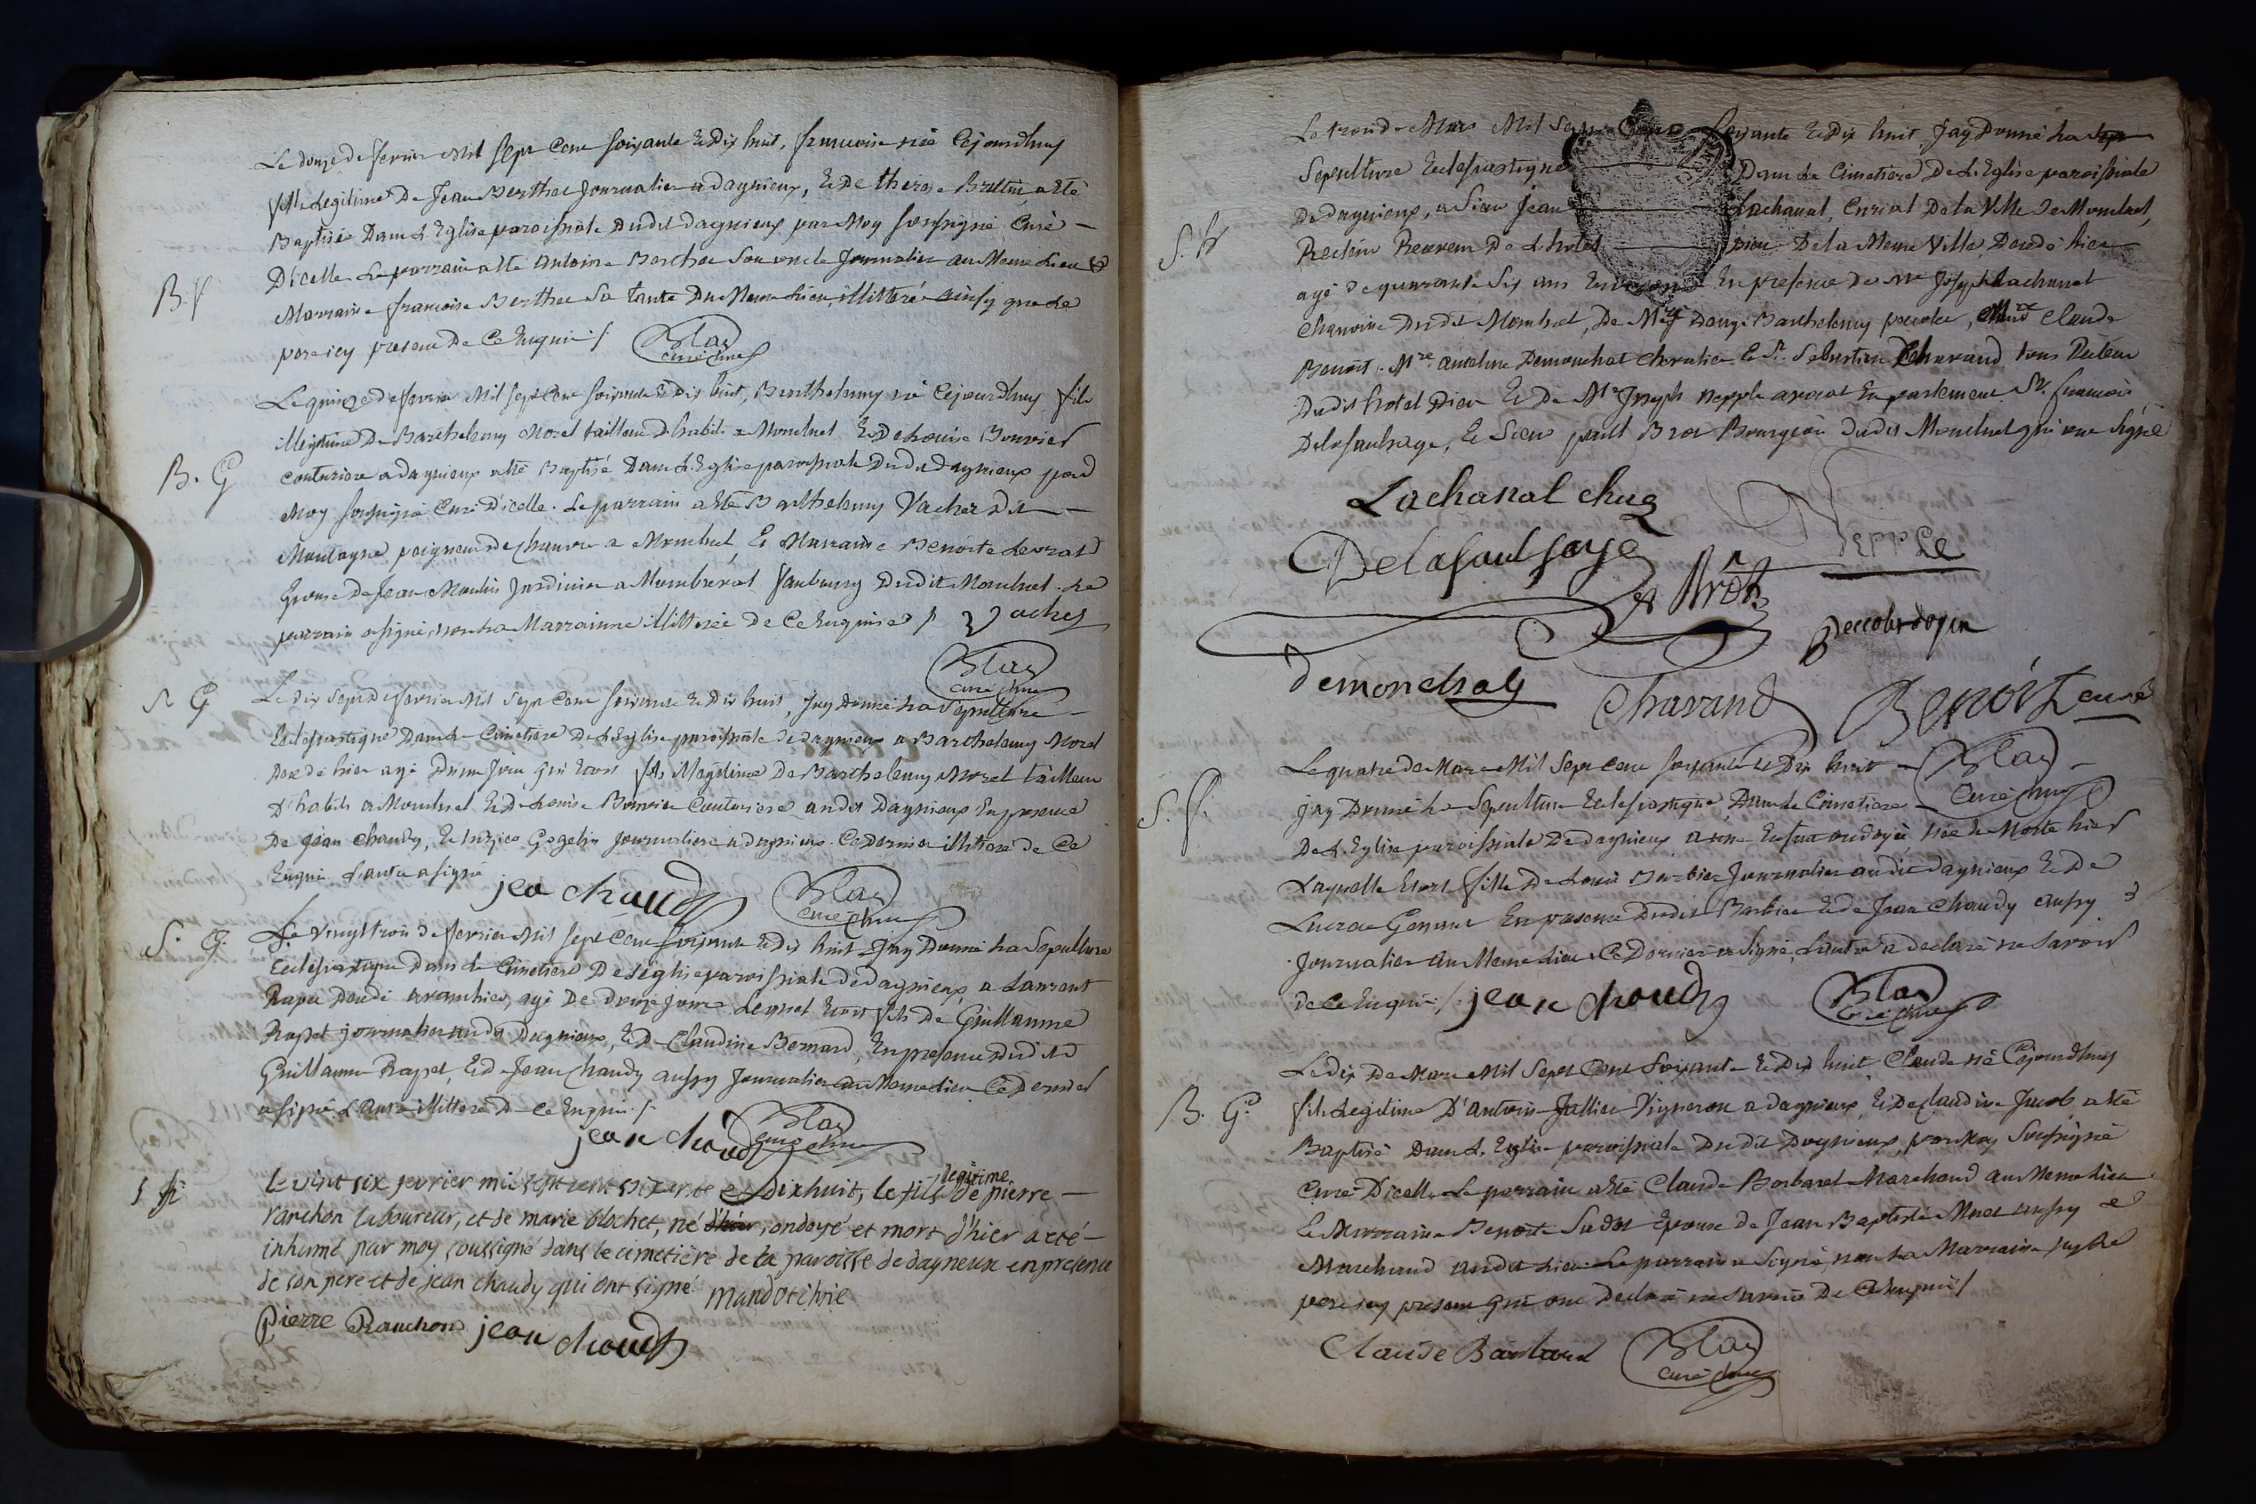 Le douze de fevrier Mil sept Cent soixante Et Dix huit, francoise née Cejourdhuy
fille Legitime De Jean Berthet Journalier a dagnieux, Et De therese Brettin a Eté
Baptisée Dans L'Eglise paroissiale Dudit dagnieux par Moy soussigné Curé
D'icelle Le parrain a Eté Antoine Berthet Son oncle Journalier au Meme Lieu Et
B. f
Marraine francoise Berthet Sa tante Du Meme Lieu, illitterés ainsy que Le
pere icy present De Ce Enquis /
Blay
curé
Le quinze de fevrier Mil sept Cent soixante Et dix huit, Barthelemy né Cejourdhuy fils
illegitime De Barthelemy Morel tailleur d'habits a Montluel Et De Louise Bouvier
B. G
couturiere a dagnieux a Eté Baptisé Dans L'Eglise paroissiale Dudit dagnieux par
Moy soussigné Curé D'icelle. Le parrain a Eté Barthelemy Vacher Dit
Montagne peigneur de chanvre a Montluel, Et Marraine Benoite Levrat
Epouse De Jean Moulin Jardinier a Montbrevat faubourg Dudit Montluel. Le
parrain a signé, non La Marrainne illitterée de Ce Enquise / Vacher
Blay
curé
S. G
Le dix sept de fevrier Mil sept Cent soixante Et Dix huit, Jay Donné La Sepulture
Eclesiastique Dans Le Cimetiere De L'Eglise paroissiale De dagnieux a Barthelemy Morel
Decedé hier agé D'un Jour Qui Etoit fils illegitime De Barthelemy Morel tailleur
D'habits a Montluel Et De Louise Bouvier Couturiere audit Dagnieux En presence
De jean Chaudy, Et Gogelin Journaliers a dagnieux. Ce Dernier illitteré de Ce
Enquis L'autre a signé
jea chaudy
Blay
curé
S. G.
Le vingt trois de fevrier Mil sept Cent soixante Et dix huit Jay Donné La Sepulture
Eclesiastique Dans Le Cimetiere De L'eglise paroissiale de dagnieux a Laurent
Rapet Decedé avanthier, agé De Douze jours Lequel Etoit fils De Guillaume
Rapet journalier audit Dagnieux, Et De Claudine Bernard, En presence Dudit
Guillaume Rapet, Et De Jean Chaudy aussy Journalier au Meme Lieu Ce Dernier
a signé L'autre illitteré De Ce Enquis /.
jean chaudy
Blay
curé
Le vint six fevrier mil sept cent soixante et Dixhuit, le fils legitime de pierre
ranchon laboureur, et de marie blochet, né d'hier, ondoyé et mort d'hier a eté
inhumé par moy soussigné dans le cimetiere de la paroisse de dagneux en presence
de son pere et de jean chaudy qui ont signé
Pierre Ranchon jean chaudy
Le trois de Mars Mil Sept Cent Soixante Et Dix huit, Jay Donné La
Sepulture Eclesiastique Dans Le Cimetiere De L'Eglise paroissiale
De dagnieux, a Sieur Jean Lachanal, Curial De la Ville De Montluel,
Recteur Receveur De L'hotel Dieu De la Meme Ville Decedé hier
agé De quarante Six ans Environ En presence De Mre Joseph Lachanal
Chanoine Dudit Montluel, De Barthelemy, Claude
Benoit, Mre anselme Demonchat Chevalier Et Sr. Sebastien Chavand tous Recteurs
Dudit hotel Dieu Et De Mre Joseph Nepple avocat En parlement Sr. francois
Delasaulsaye, Et Sieur paul Brot Bourgeois Dudit Montluel qui ont Signé
Lachanal
Nepple
Delasaulsaye
Brot
Demonchat
Chavand
Benoit curé
Blay
curé
S. f.
Le quatre de Mars Mil Sept Cent Soixante Et Dix huit
Jay Donné La Sepulture Eclesiastique Dans Le Cimetiere
De L'Eglise paroissiale De dagnieux a un Enfant ondoyée, Née Et Morte hier
Laquelle Etoit fille De Louis Barbier Journalier audit dagnieux Et De
En presence Dudit Barbier Et de Jean Chaudy aussy
Journalier Au Meme Lieu Ce Dernier a Signé, L'autre a declaré ne Savoir
de Ce Enquis /. jean chaudy
Blay
curé
Le dix De Mars Mil Sept Cent Soixante Et Dix huit Claude né Cejourdhuy
B. G.
fils Legitime D'antoine Vigneron a dagnieux, Et De Claudine Jacob a Eté
Baptisé Dans L'Eglise paroissiale Du Dit Dagnieux par Moy Soussigné
Curé D'icelle Le parrain a Eté Claude Barbaret Marchand au Meme Lieu
Et Marraine Benoite Epouse De Jean Baptiste aussy
Marchand audit Lieu. Le parrain a Signé, non La Marraine Ny Le
pere icy present Qui ont Declaré ne Savoir De Ce Enquis /
Claude
Blay
curé